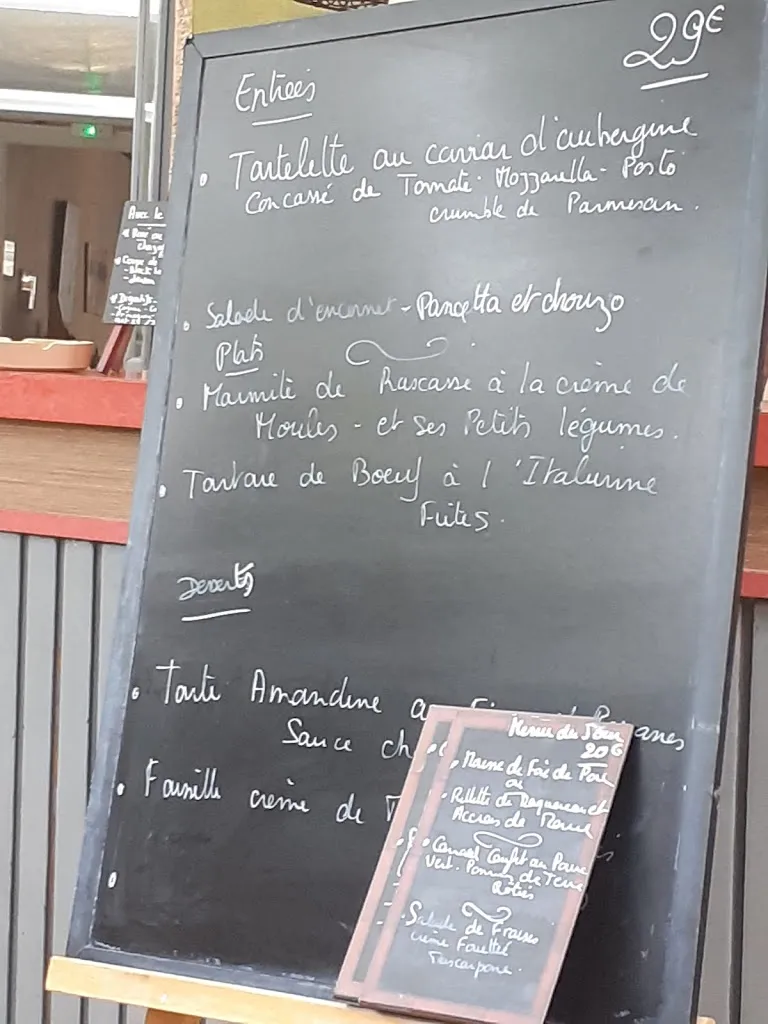 29€
Entrées
• Tartelette au caviar d'aubergine
Concassé de Tomate - Mozzarella - Pesto
crumble de Parmesan.
• Salade d'encornet - Pancetta et chorizo
Plats
• Marmite de Rascasse à la crème de
Moules - et ses Petits légumes.
• Tartare de Boeuf à l'Italienne
Frites.
Desserts
• Tarte Amandine
Sauce
• crème de
Menu du Jour
20€
• Mousse de Foie de Porc
ou
• Rillette de Maquereau et
Accras de Morue
• Canard Confit au Poivre
Vert. Pommes de Terre
Rôties
• Salade de Fraises
crème Fouettée
Mascarpone.
Avec le